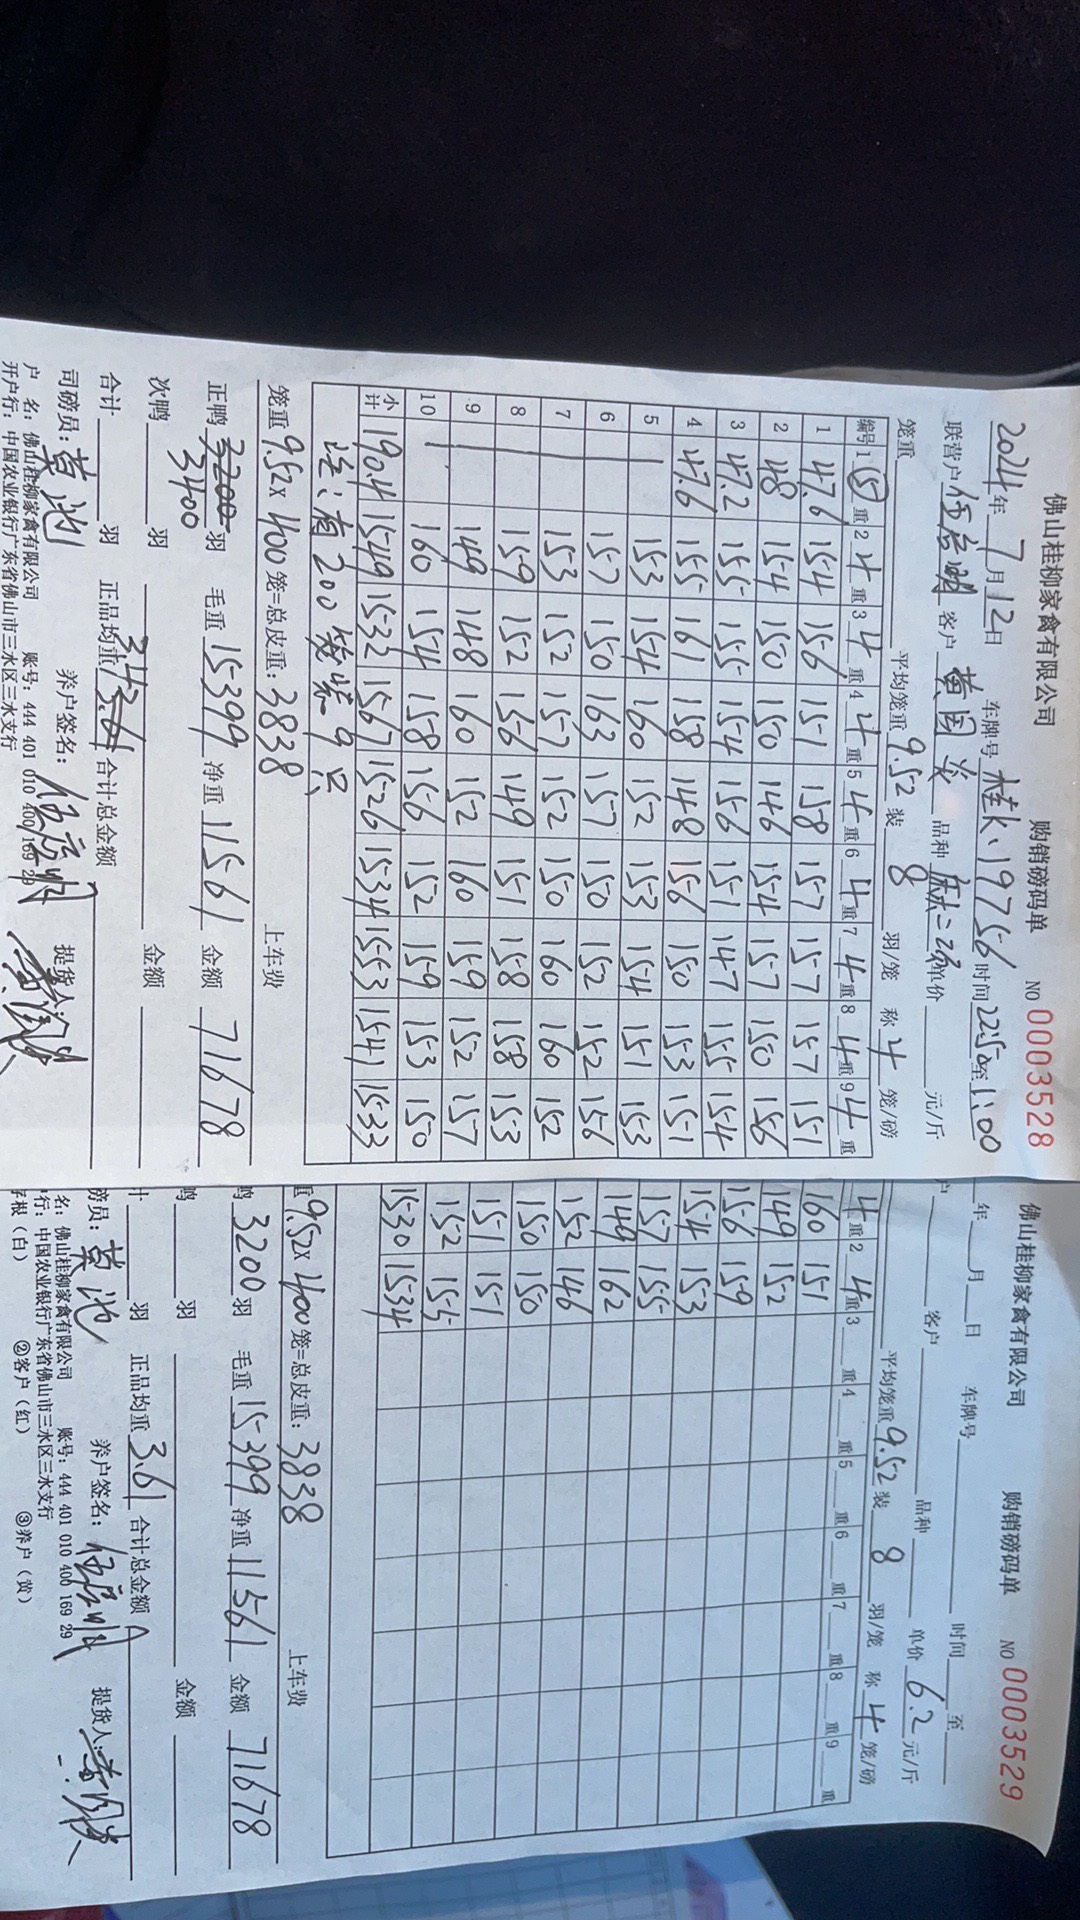 佛山桂柳家禽有限公司 购销磅码单 NO 0003528
2024年7月12日 车牌号 桂K·19756 时间 22:50至1:00
联营户 客户 黄国 品种 单价 元/斤
笼重 平均笼重 9.52 装 8 羽/笼 称 4 笼/磅
编号 1 ⑤ 重 2 4 重 3 4 重 4 4 重 5 4 重 6 4 重 7 4 重 8 4 重 9 4 重
1 47.6 154 156 151 158 157 157 157 151
2 48 154 150 150 146 154 157 150 156
3 47.2 155 155 154 156 151 147 155 154
4 47.6 155 161 158 148 156 150 153 151
5 153 154 160 152 153 154 151 153
6 157 150 163 157 150 152 152 156
7 153 152 157 152 150 160 160 152
8 159 152 156 149 151 158 158 153
9 149 148 160 152 160 159 152 157
10 160 154 158 156 152 159 153 150
小计 190.4 1549 1532 1567 1526 1534 1553 1541 1533
注:有200笼装9只
笼重 9.52× 400 笼=总皮重: 3838 上车费
正鸭 3200 羽 毛重 15399 净重 11561 金额 71678
3400
次鸭 羽 金额
合计 羽 正品均重 3.4 合计总金额
司磅员: 黄池 养户签名: 提货人:
户 名: 佛山桂柳家禽有限公司 账号: 444 401 010 400 169 29
开户行: 中国农业银行广东省佛山市三水区三水支行
佛山桂柳家禽有限公司 购销磅码单 NO 0003529
年 月 日 车牌号 时间 至
户 客户 品种 单价 6.2 元/斤
平均笼重 9.52 装 8 羽/笼 称 4 笼/磅
4 重 2 4 重 3 重 4 重 5 重 6 重 7 重 8 重 9 重
160 151
149 152
156 159
154 153
157 155
149 162
152 146
150 150
151 151
152 155
1530 1534
重 9.52× 400 笼=总皮重: 3838 上车费
鸭 3200 羽 毛重 15399 净重 11561 金额 71678
鸭 羽 金额
计 羽 正品均重 3.61 合计总金额
磅员: 黄池 养户签名: 提货人:
名: 佛山桂柳家禽有限公司 账号: 444 401 010 400 169 29
行: 中国农业银行广东省佛山市三水区三水支行
存根(白) ②客户(红) ③养户(黄)